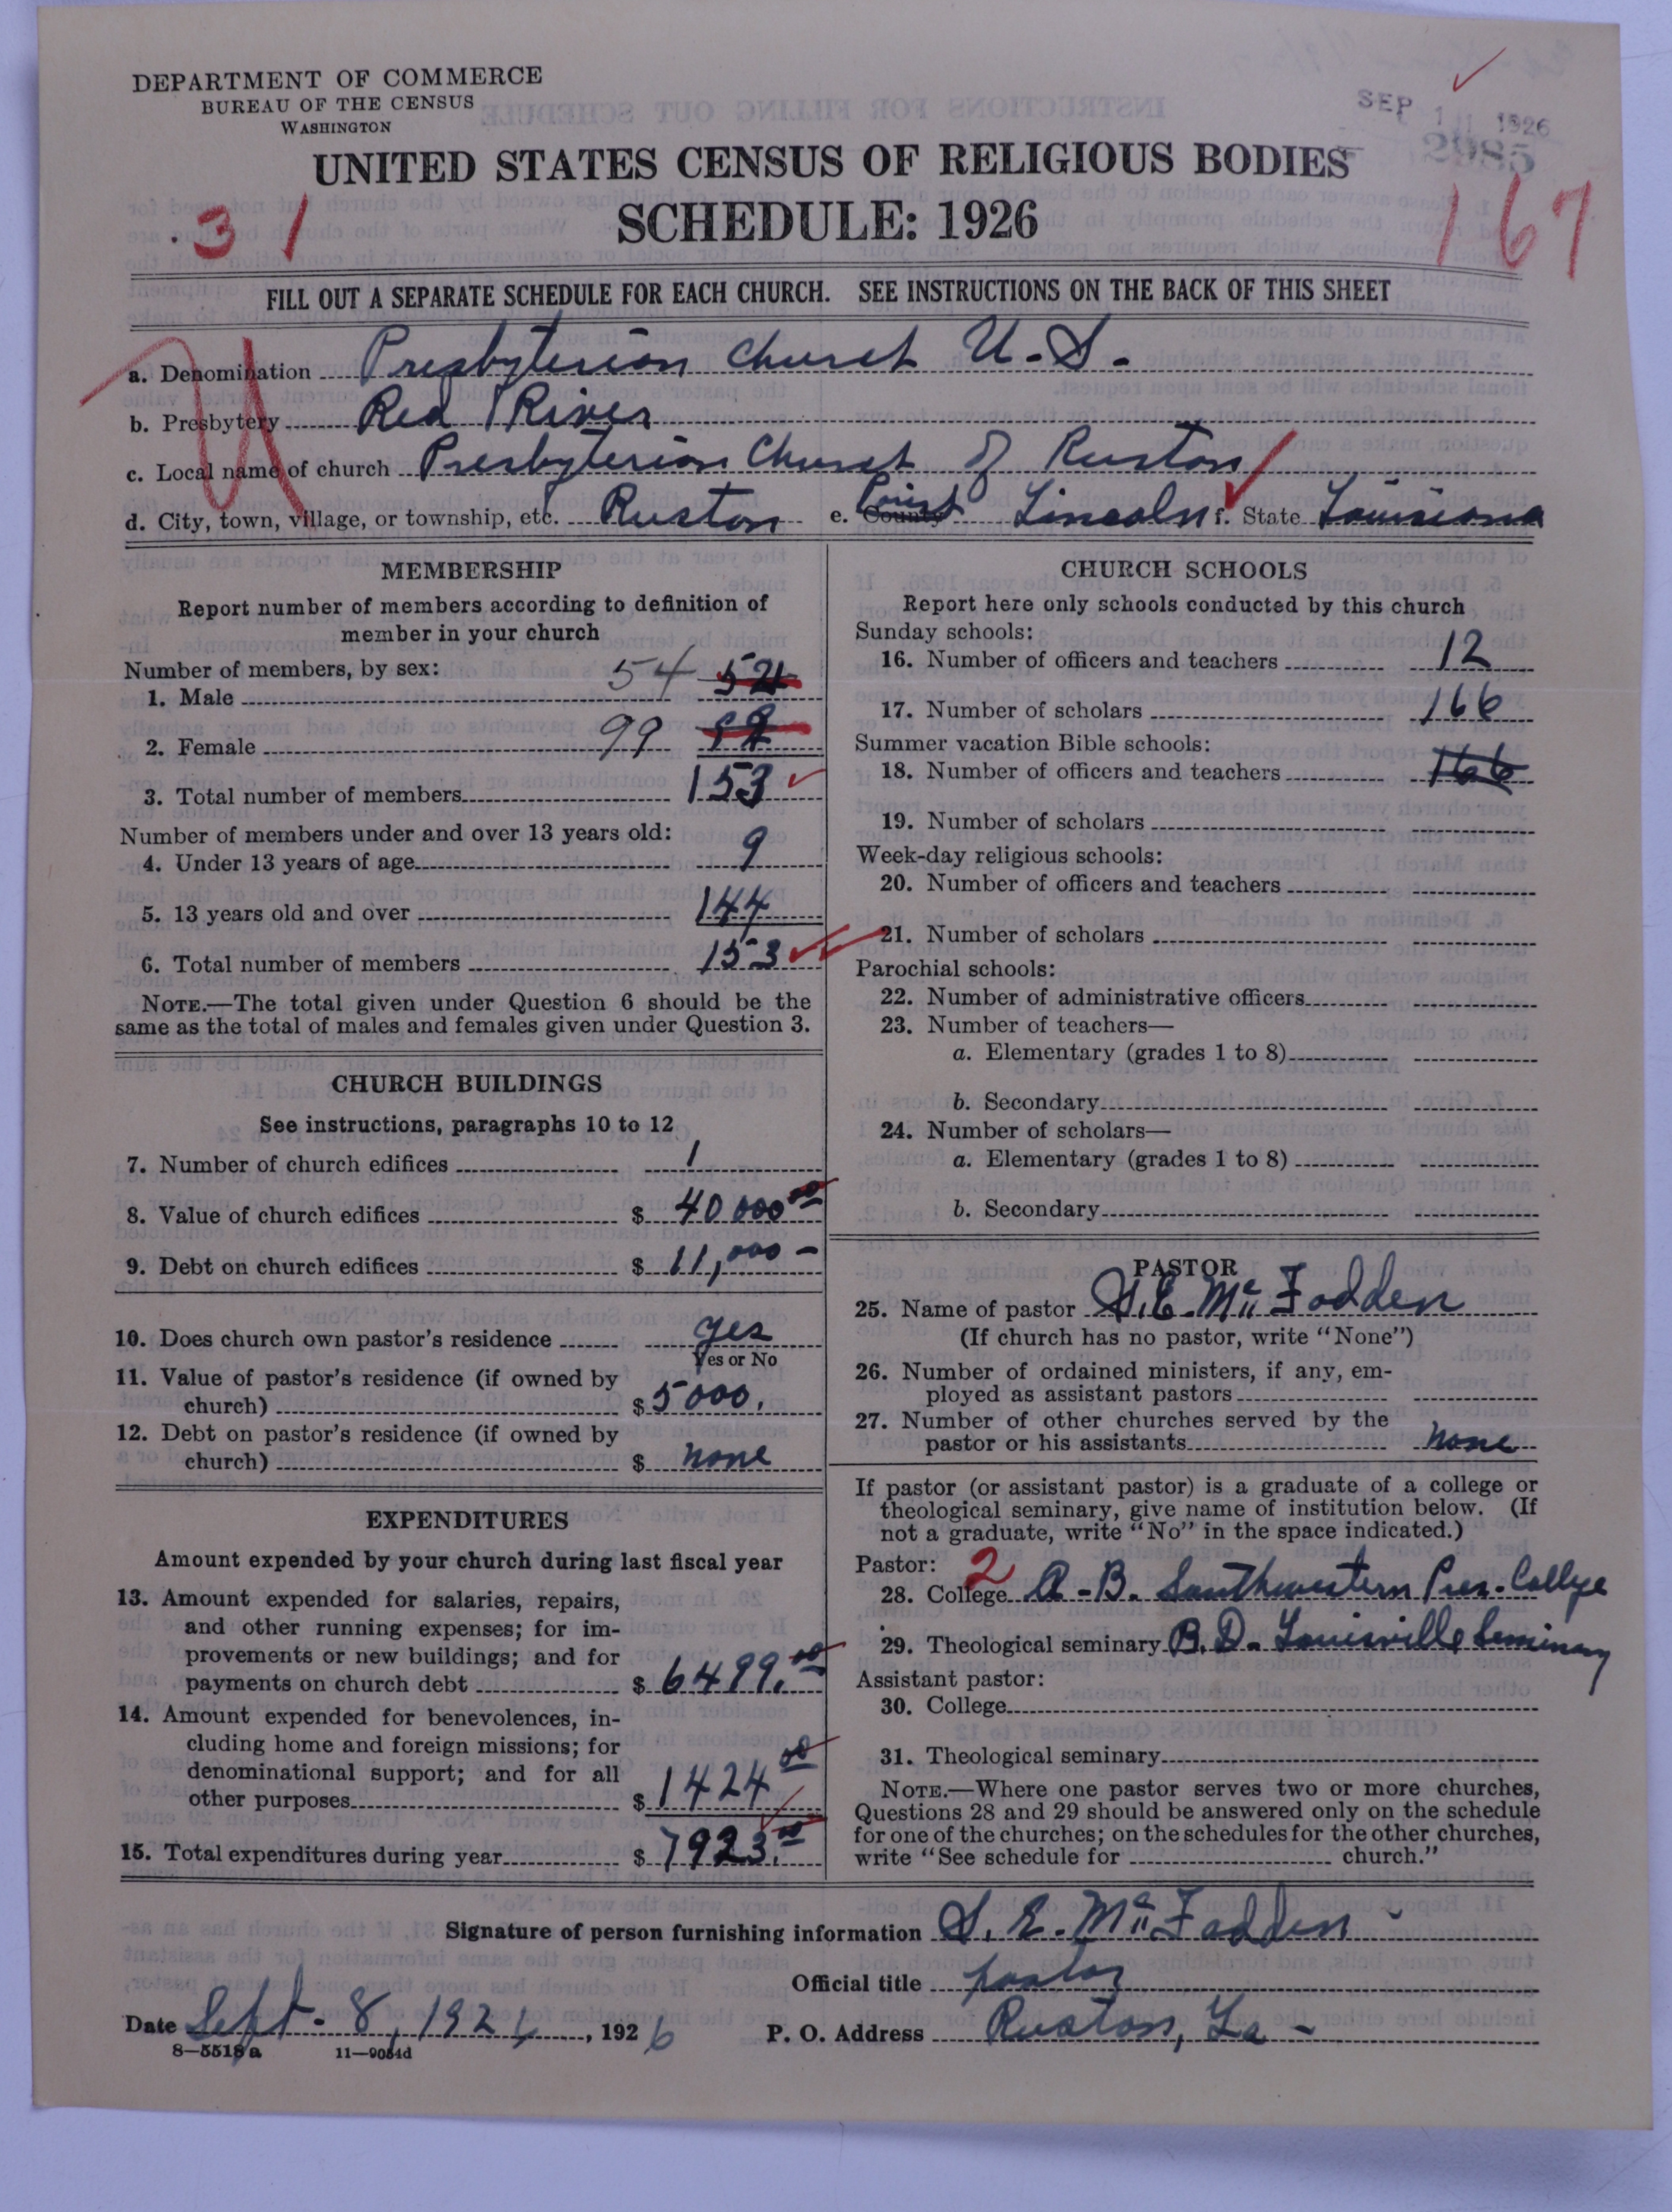 DEPARTMENT OF COMMERCE
BUREAU OF THE CENSUS
WASHINGTON
SEP 1 1926
2985
UNITED STATES CENSUS OF RELIGIOUS BODIES
SCHEDULE: 1926
31
167
FILL OUT A SEPARATE SCHEDULE FOR EACH CHURCH. SEE INSTRUCTIONS ON THE BACK OF THIS SHEET
a. Denomination Presbyterian Church U.S.
b. Presbytery Red River
c. Local name of church Presbyterian Church of Ruston
d. City, town, village, or township, etc. Ruston e. County Parish Lincoln f. State Louisiana
MEMBERSHIP
Report number of members according to definition of
member in your church
Number of members, by sex:
1. Male 54
2. Female 99
3. Total number of members 153
Number of members under and over 13 years old:
4. Under 13 years of age 9
5. 13 years old and over 144
6. Total number of members 153
NOTE.—The total given under Question 6 should be the
same as the total of males and females given under Question 3.
CHURCH BUILDINGS
See instructions, paragraphs 10 to 12
7. Number of church edifices 1
8. Value of church edifices $ 40 000 00
9. Debt on church edifices $ 11,000 -
10. Does church own pastor's residence yes
Yes or No
11. Value of pastor's residence (if owned by
church) $ 5000.
12. Debt on pastor's residence (if owned by
church) $ none
EXPENDITURES
Amount expended by your church during last fiscal year
13. Amount expended for salaries, repairs,
and other running expenses; for im-
provements or new buildings; and for
payments on church debt $ 6499.00
14. Amount expended for benevolences, in-
cluding home and foreign missions; for
denominational support; and for all
other purposes $ 1424 00
15. Total expenditures during year $ 7923.00
CHURCH SCHOOLS
Report here only schools conducted by this church
Sunday schools:
16. Number of officers and teachers 12
17. Number of scholars 166
Summer vacation Bible schools:
18. Number of officers and teachers 166
19. Number of scholars
Week-day religious schools:
20. Number of officers and teachers
21. Number of scholars
Parochial schools:
22. Number of administrative officers
23. Number of teachers—
a. Elementary (grades 1 to 8)
b. Secondary
24. Number of scholars—
a. Elementary (grades 1 to 8)
b. Secondary
PASTOR
25. Name of pastor S. E. McFadden
(If church has no pastor, write "None")
26. Number of ordained ministers, if any, em-
ployed as assistant pastors
27. Number of other churches served by the
pastor or his assistants none
If pastor (or assistant pastor) is a graduate of a college or
theological seminary, give name of institution below. (If
not a graduate, write "No" in the space indicated.)
Pastor: 2
28. College A-B. Southwestern Pres. College
29. Theological seminary B.D. Louisville Seminary
Assistant pastor:
30. College
31. Theological seminary
NOTE.—Where one pastor serves two or more churches,
Questions 28 and 29 should be answered only on the schedule
for one of the churches; on the schedules for the other churches,
write "See schedule for church."
Signature of person furnishing information S. E. McFadden
Official title pastor
Date Sept. 8, 1926, 1926 P. O. Address Ruston, La-
8—5518a 11—9054d